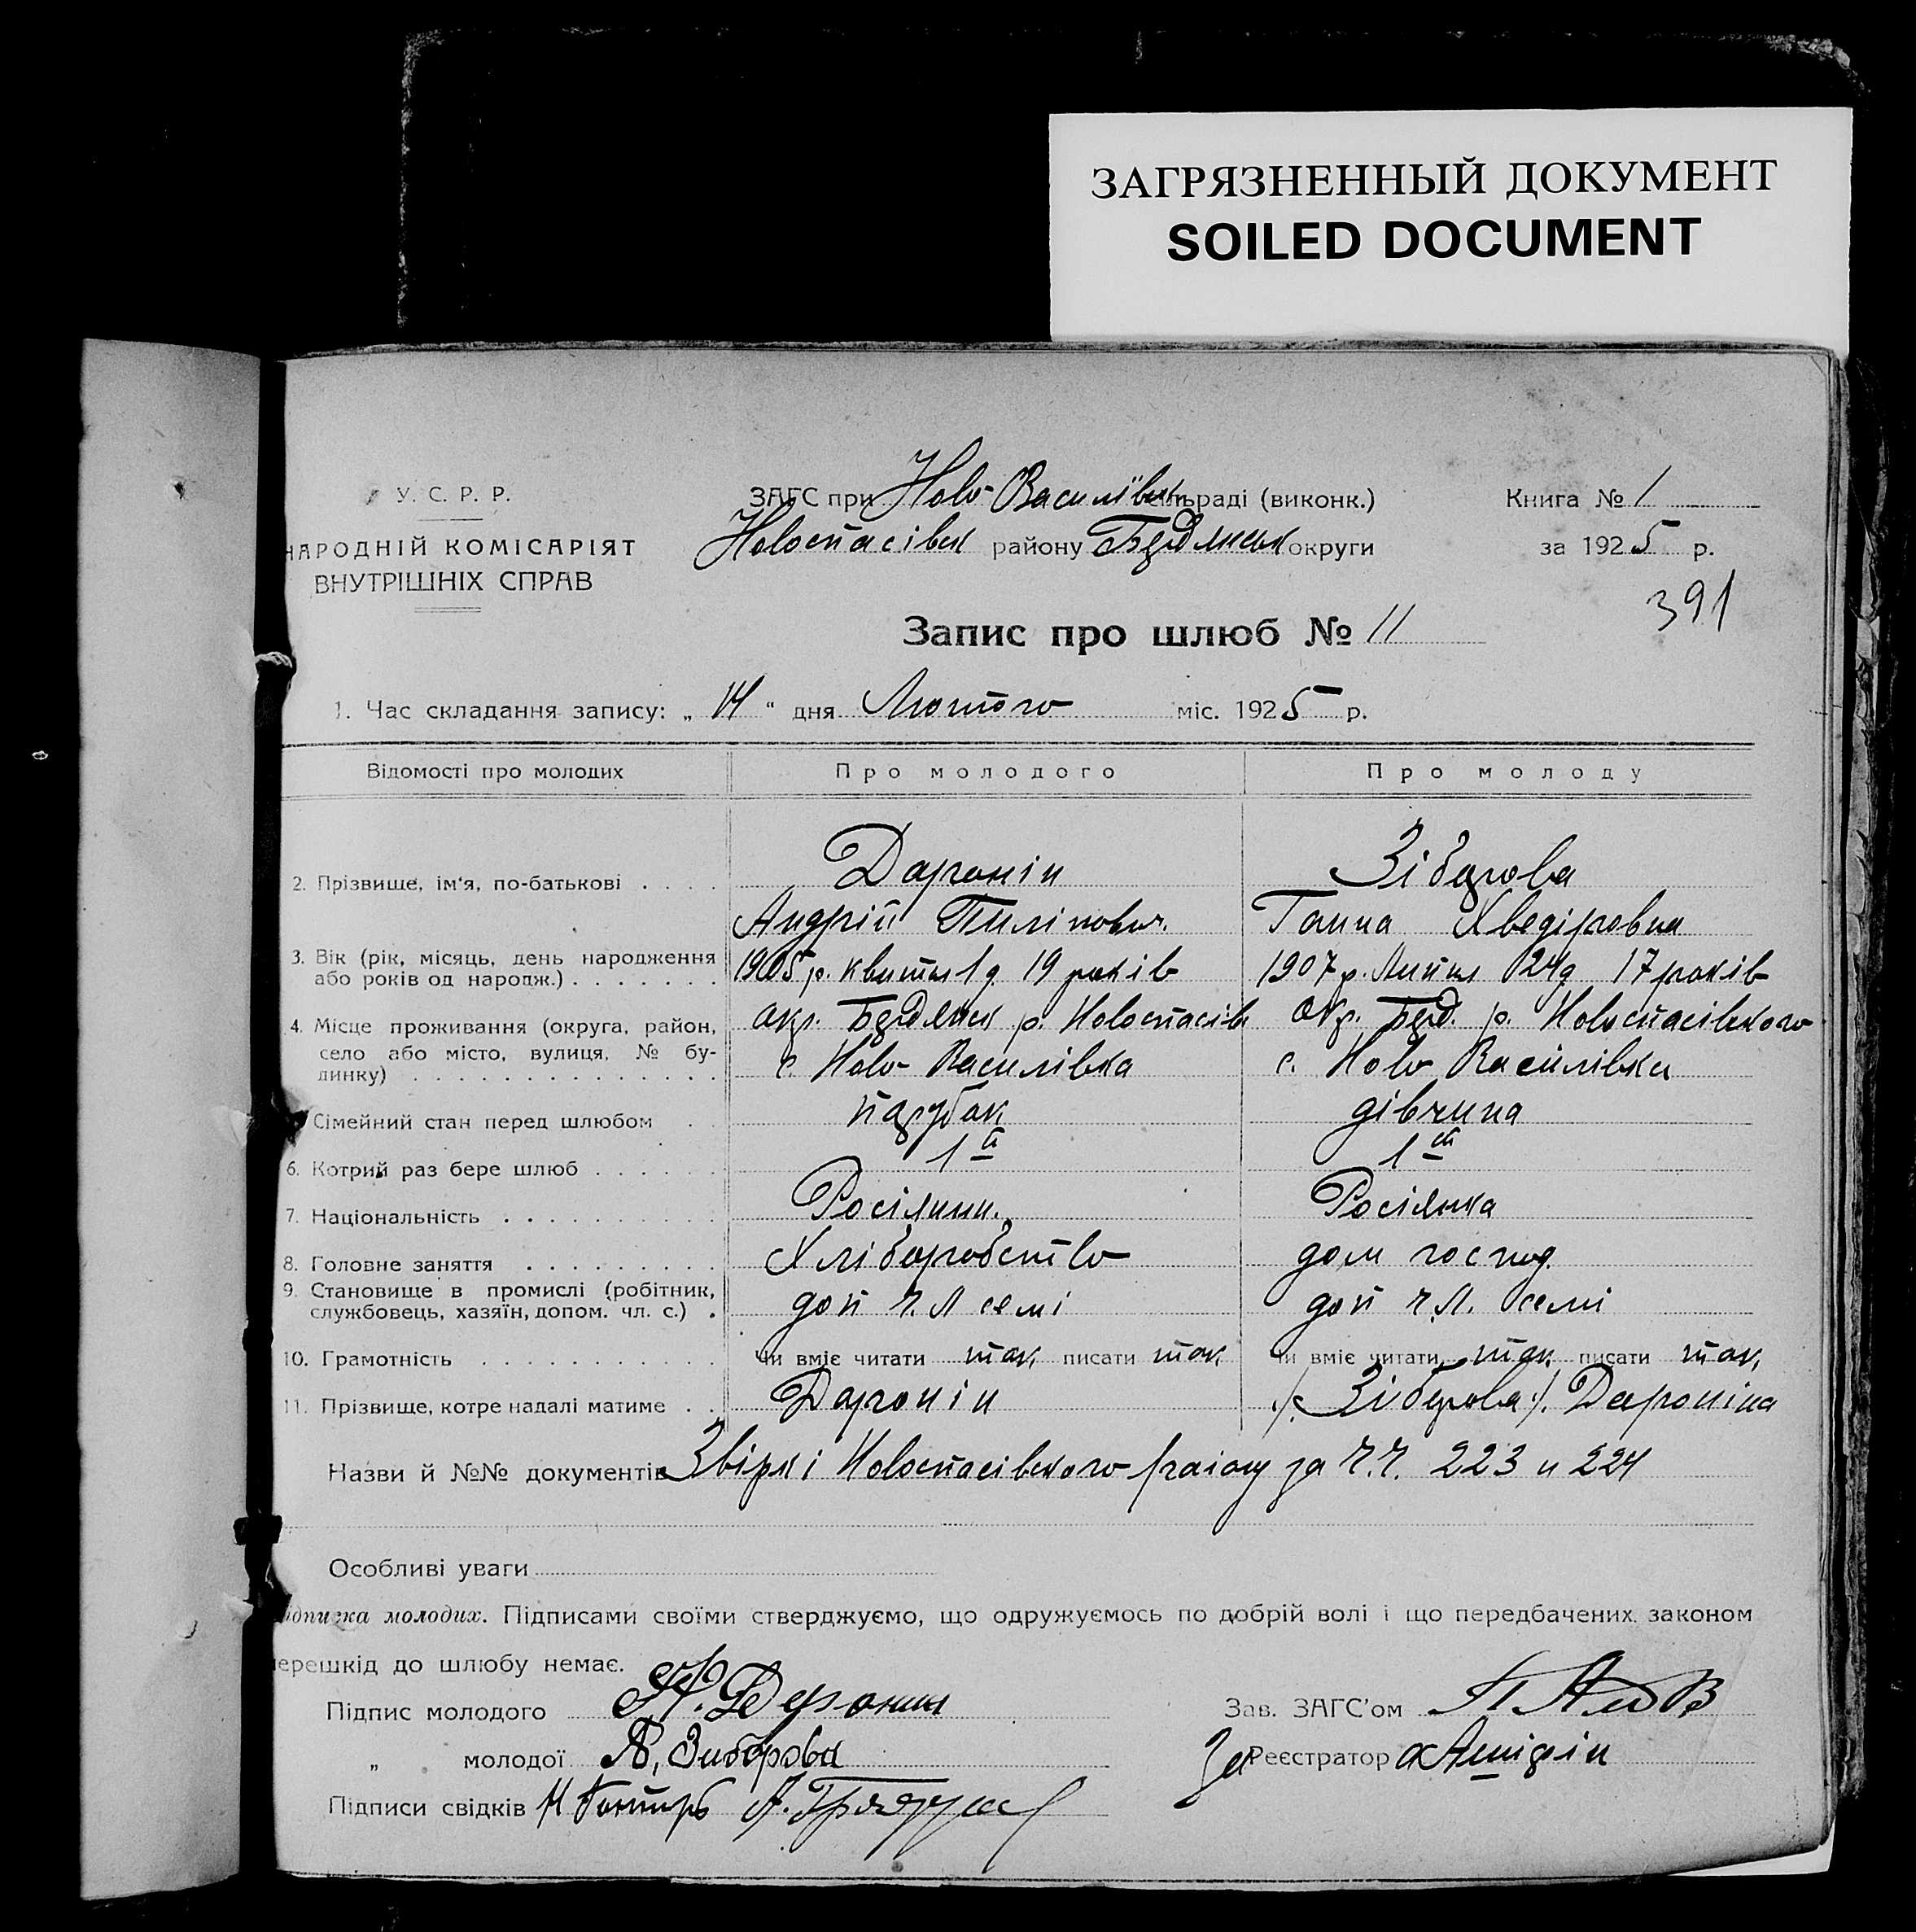 ЗАГРЯЗНЕННЫЙ ДОКУМЕНТ
SOILED DOCUMENT
У. С. Р. Р.
НАРОДНІЙ КОМІСАРІЯТ
ВНУТРІШНІХ СПРАВ
ЗАГС при Ново-Василівськ сільраді (виконк.)
Новоспасівськ району Бердянськ округи
Книга № 1
за 1925 р.
391
Запис про шлюб № 11
1. Час складання запису: „ 14 “ дня Лютого міс. 1925 р.
Відомості про молодих Про молодого Про молоду
2. Прізвище, ім'я, по-батькові . . . . Даронін Зіборова
Андрій Пиліпович. Ганна Хведіровна
3. Вік (рік, місяць, день народження або років од народж.) . . . . . . . 1905 р. квітня 1 д 19 років 1907 р. Липня 24 д 17 років
4. Місце проживання (округа, район, окр. Бердянск р. Новоспасівс окр. Берд. р. Новоспасівського
село або місто, вулиця, № бу-
динку) . . . . . . . . . . . . . . с. Ново-Василівка с. Ново Василівка
Сімейний стан перед шлюбом . . парубок дівчина
6. Котрий раз бере шлюб . . . . . . 1й 1ий
7. Національність . . . . . . . . . . Росіянин. Росіянка
8. Головне заняття . . . . . . . . . Хліборобство дом господ.
9. Становище в промислі (робітник,
службовець, хазяїн, допом. чл. с.) . доп ч. л семі доп ч. л. семі
10. Грамотність . . . . . . . . . . . Чи вміє читати так писати так Чи вміє читати так писати так
11. Прізвище, котре надалі матиме . . Даронін ./. Зіборова ./. Дароніна
Назви й №№ документів Звіркі Новоспасівського раіону за ч.ч. 223 и 224
Особливі уваги
Підписка молодих. Підписами своїми стверджуємо, що одружуємось по добрій волі і що передбачених законом
перешкід до шлюбу немає.
Підпис молодого А. Даронин
Зав. ЗАГС'ом
„ молодої А, Зиборова
За Реєстратор
Підписи свідків